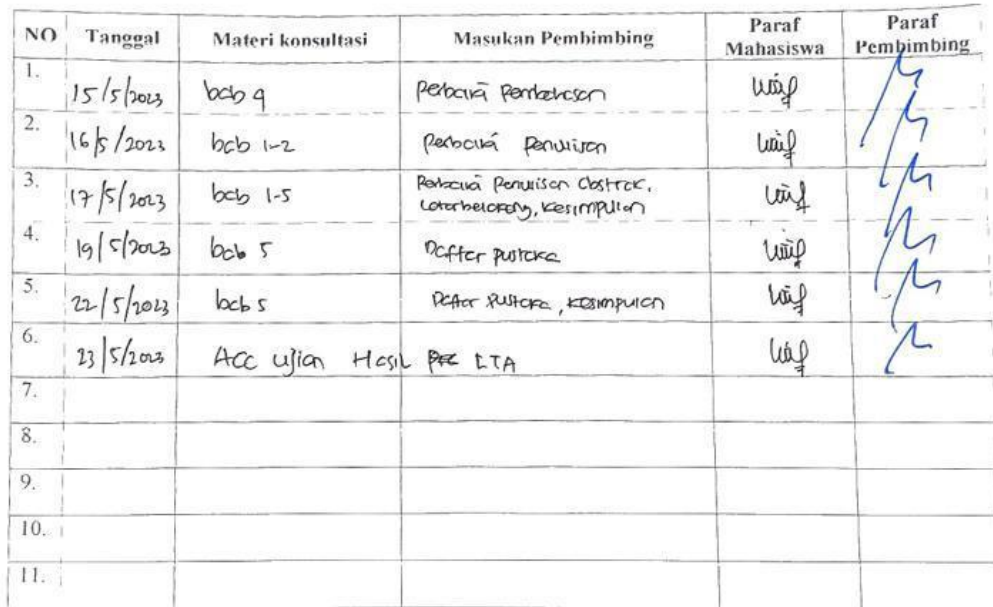 NO Tanggal Materi konsultasi Masukan Pembimbing Paraf Mahasiswa Paraf Pembimbing
1. 15/5/2023 bab 4 Perbaiki Pembahasan
2. 16/5/2023 bab 1-2 Perbaiki Penulisan
3. 17/5/2023 bab 1-5 Perbaiki Penulisan Abstrak,
Latarbelakang, Kesimpulan
4. 19/5/2023 bab 5 Daftar pustaka
5. 22/5/2023 bab 5 Daftar Pustaka, kesimpulan
6. 23/5/2023 Acc Ujian Hasil LTA
7.
8.
9.
10.
11.